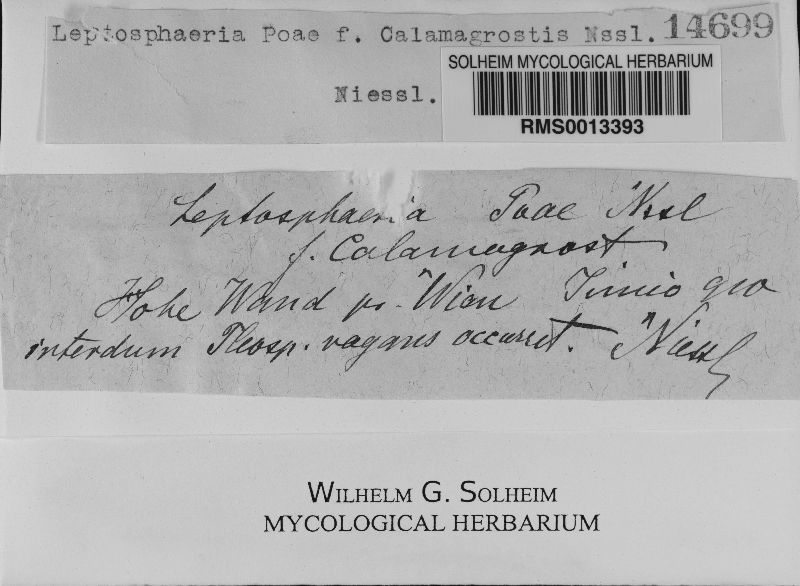 Leptosphaeria Poae f. Calamagrostis Nssl. 14699
Niessl.
SOLHEIM MYCOLOGICAL HERBARIUM
RMS0013393
Leptosphaeria Poae Nssl
f. Calamagrost
Hohe Wand pr. Wien Junio
interdum Pleosp. vagans occurret. Niessl
WILHELM G. SOLHEIM
MYCOLOGICAL HERBARIUM